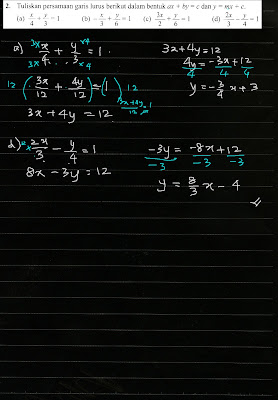 2. Tuliskan persamaan garis lurus berikut dalam bentuk ax + by = c dan y = mx + c.
(a) x/4 + y/3 = 1 (b) -x/3 + y/6 = 1 (c) 3x/2 + y/6 = 1 (d) 2x/3 - y/4 = 1
a) 3x x/4 + y/3 x4 = 1
3x x4
12 (3x/12 + 4y/12) = (1) 12
3x+4y/12 = 1
3x + 4y = 12
3x + 4y = 12
4y/4 = -3x/4 + 12/4
y = -3/4 x + 3
d) 2x/3 - y/4 = 1
8x - 3y = 12
-3y/-3 = -8x/-3 + 12/-3
y = 8/3 x - 4